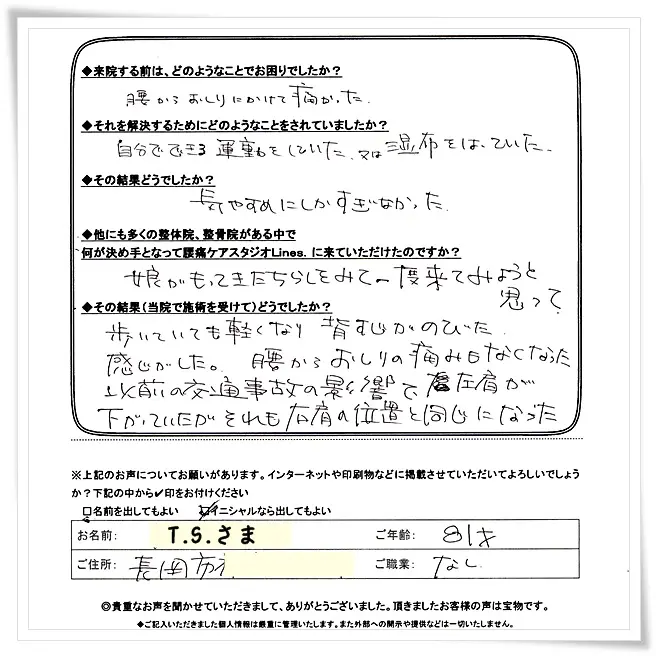 ◆来院する前は、どのようなことでお困りでしたか？
腰からおしりにかけて痛かった.
◆それを解決するためにどのようなことをされていましたか？
自分でできる運動をしていた.又は湿布をはっていた.
◆その結果どうでしたか？
気やすめにしかすぎなかった.
◆他にも多くの整体院、整骨院がある中で
何が決め手となって腰痛ケアスタジオLines.に来ていただけたのですか？
娘がもってきたちらしをみて一度来てみようと
思って.
◆その結果（当院で施術を受けて）どうでしたか？
歩いていても軽くなり 背すじがのびた
感じがした。 腰からおしりの痛みもなくなった
以前の交通事故の影響で左肩が
下がっていたがそれも右肩の位置と同じになった
※上記のお声についてお願いがあります。インターネットや印刷物などに掲載させていただいてよろしいでしょう
か？下記の中から✔印をお付けください
□名前を出してもよい ☑イニシャルなら出してもよい
お名前： T.S.さま ご年齢： 81才
ご住所： 長岡市 ご職業： なし
◎貴重なお声を聞かせていただきまして、ありがとうございました。頂きましたお客様の声は宝物です。
◆ご記入いただきました個人情報は厳重に管理いたします。また外部への開示や提供などは一切いたしません。